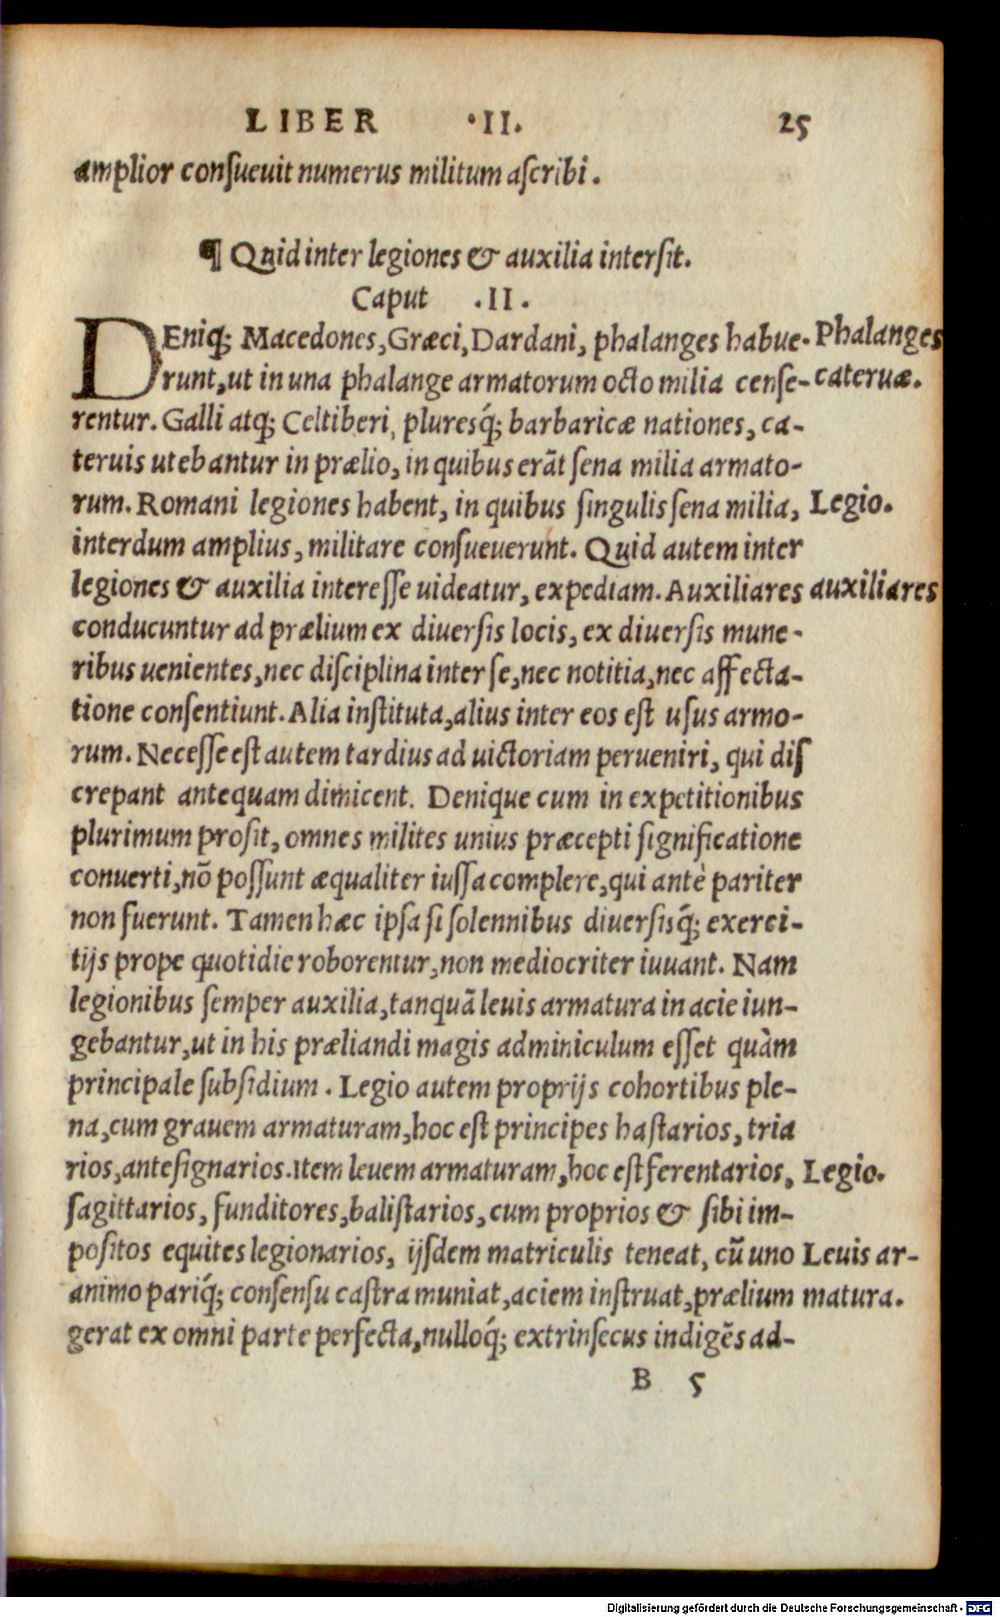 LIBER ·II. 25
amplior consueuit numerus militum ascribi.
¶ Quid inter legiones & auxilia intersit.
Caput .II.
DEniq; Macedones, Græci, Dardani, phalanges habue- Phalanges
runt, ut in una phalange armatorum octo milia cense- cateruæ.
rentur. Galli atq; Celtiberi, pluresq́; barbaricæ nationes, ca-
teruis utebantur in prælio, in quibus erãt sena milia armato-
rum. Romani legiones habent, in quibus singulis sena milia, Legio.
interdum amplius, militare consueuerunt. Quid autem inter
legiones & auxilia interesse uideatur, expediam. Auxiliares auxiliares
conducuntur ad prælium ex diuersis locis, ex diuersis mune-
ribus uenientes, nec disciplina inter se, nec notitia, nec affecta-
tione consentiunt. Alia instituta, alius inter eos est usus armo-
rum. Necesse est autem tardius ad uictoriam perueniri, qui dis
crepant antequam dimicent. Denique cum in expetitionibus
plurimum prosit, omnes milites unius præcepti significatione
conuerti, nõ possunt æqualiter iussa complere, qui antè pariter
non fuerunt. Tamen hæc ipsa si solennibus diuersisq́; exerci-
tijs prope quotidie roborentur, non mediocriter iuuant. Nam
legionibus semper auxilia, tanquã leuis armatura in acie iun-
gebantur, ut in his præliandi magis adminiculum esset quàm
principale subsidium. Legio autem proprijs cohortibus ple-
na, cum grauem armaturam, hoc est principes hastarios, tria
rios, antesignarios. Item leuem armaturam, hoc est ferentarios, Legio.
sagittarios, funditores, balistarios, cum proprios & sibi im-
positos equites legionarios, ijsdem matriculis teneat, cũ uno Leuis ar-
animo pariq́; consensu castra muniat, aciem instruat, prælium matura.
gerat ex omni parte perfecta, nulloq́; extrinsecus indigẽs ad-
B 5
Digitalisierung gefördert durch die Deutsche Forschungsgemeinschaft - DFG